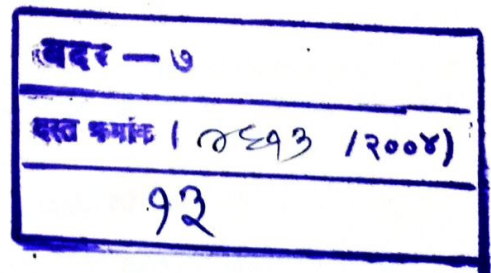 बदर — ७
दस्त क्रमांक । ७६१३ /२००४)
१२